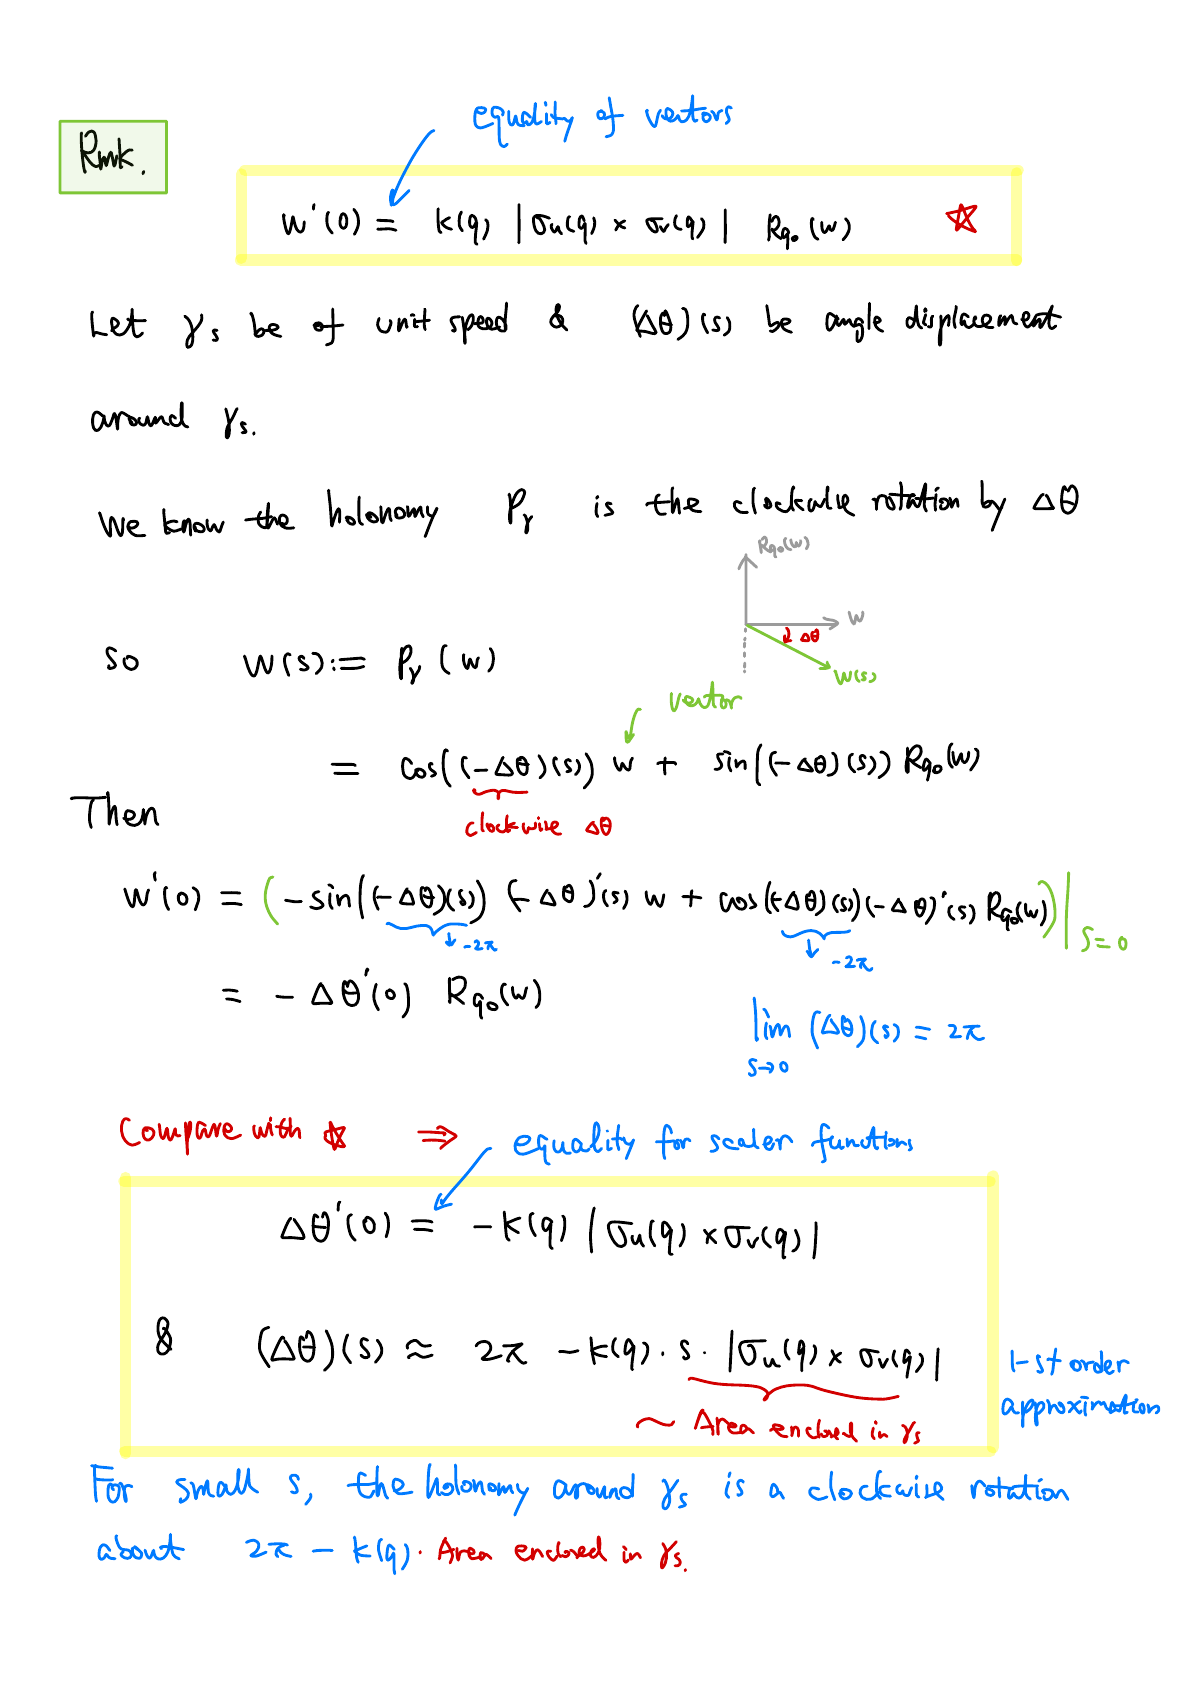 equality of vectors
Rmk.
W'(0) = K(q) |σu(q) × σv(q)| Rq₀(w) ☆
Let γs be of unit speed & (Δθ)(s) be angle displacement
around γs.
We know the holonomy Pγ is the clockwise rotation by Δθ
Rq₀(w)
W
Δθ
W(s)
So W(s) := Pγ(w)
vector
= cos((-Δθ)(s)) w + sin((-Δθ)(s)) Rq₀(w)
clockwise Δθ
Then
W'(0) = (-sin((-Δθ)(s)) (-Δθ)'(s) w + cos((-Δθ)(s))(-Δθ)'(s) Rq₀(w))|s=0
↓ -2π ↓ -2π
= -Δθ'(0) Rq₀(w)
lim (Δθ)(s) = 2π
s→0
Compare with ☆ ⇒ equality for scaler functions
Δθ'(0) = -K(q) |σu(q) × σv(q)|
& (Δθ)(s) ≈ 2π - K(q) · s · |σu(q) × σv(q)|
1-st order
approximation
~ Area enclosed in γs
For small s, the holonomy around γs is a clockwise rotation
about 2π - K(q) · Area enclosed in γs.